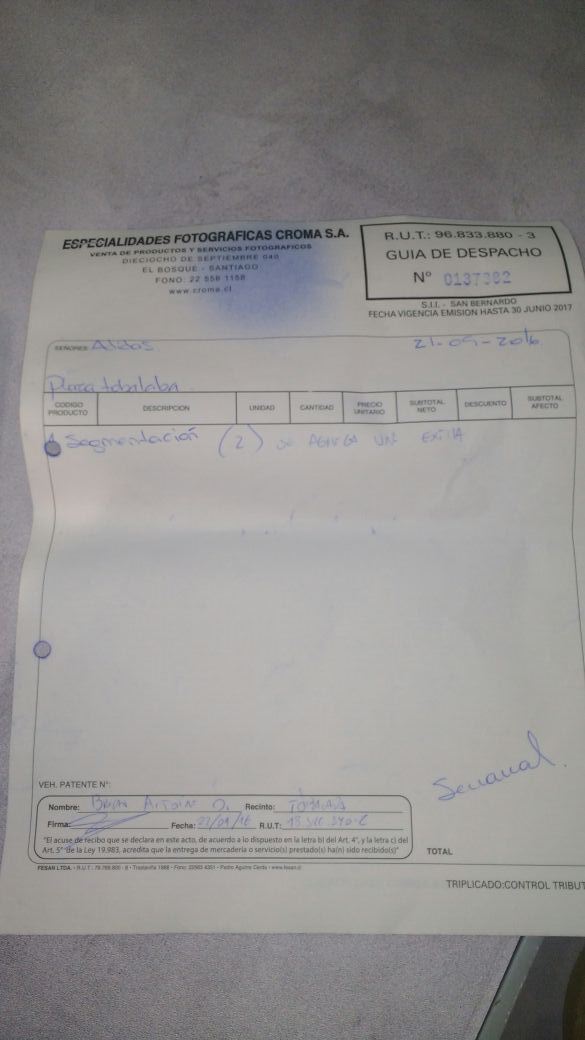 ESPECIALIDADES FOTOGRAFICAS CROMA S.A.
VENTA DE PRODUCTOS Y SERVICIOS FOTOGRAFICOS
DIECIOCHO DE SEPTIEMBRE 040
EL BOSQUE - SANTIAGO
FONO: 22 558 1158
www.croma.cl
R.U.T.: 96.833.880 - 3
GUIA DE DESPACHO
Nº 0137382
S.I.I. - SAN BERNARDO
FECHA VIGENCIA EMISION HASTA 30 JUNIO 2017
SEÑORES: Aldos
21-09-2016
Plaza tobalaba
CODIGO PRODUCTO DESCRIPCION UNIDAD CANTIDAD PRECIO UNITARIO SUBTOTAL NETO DESCUENTO SUBTOTAL AFECTO
Segmentación (2) se AGREGA UN EXTRA
Semanal.
VEH. PATENTE N°:
Nombre: Recinto: TOBALABA
Firma: Fecha: R.U.T.:
"El acuse de recibo que se declara en este acto, de acuerdo a lo dispuesto en la letra b) del Art. 4°, y la letra c) del
Art. 5° de la Ley 19.983, acredita que la entrega de mercadería o servicio(s) prestado(s) ha(n) sido recibido(s)"
TOTAL
FESAN LTDA. • R.U.T.: • Fono: 22563 4351 - Pedro Aguirre Cerda • www.fesan.cl
TRIPLICADO:CONTROL TRIBUT